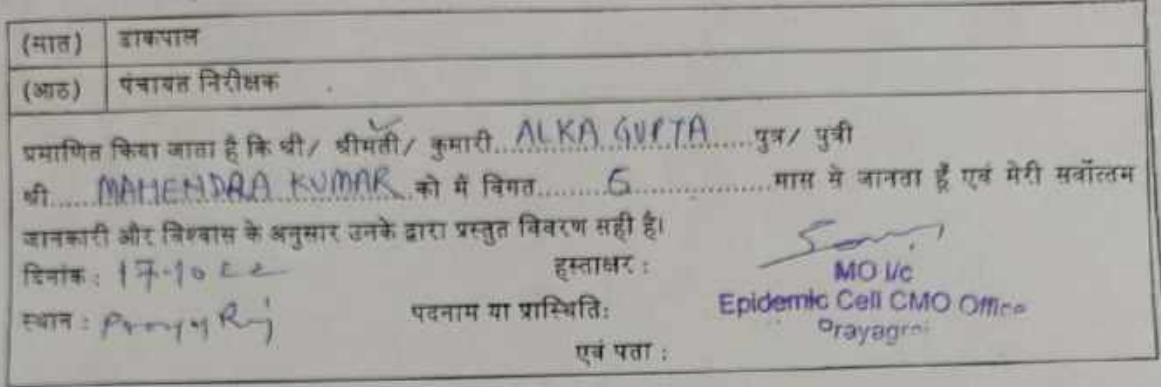 (सात) डाकपाल
(आठ) पंचायत निरीक्षक
प्रमाणित किया जाता है कि श्री/ श्रीमती/ कुमारी..ALKA GUPTA.....पुत्र/ पुत्री
श्री......MAHENDRA KUMAR..को मैं विगत.........6.................मास से जानता हूँ एवं मेरी सर्वोत्तम
जानकारी और विश्वास के अनुसार उनके द्वारा प्रस्तुत विवरण सही है।
दिनांक : 17-10 22 हस्ताक्षर :
MO I/c
स्थान : पदनाम या प्रास्थिति: Epidemic Cell CMO Office
Prayagraj
एवं पता :